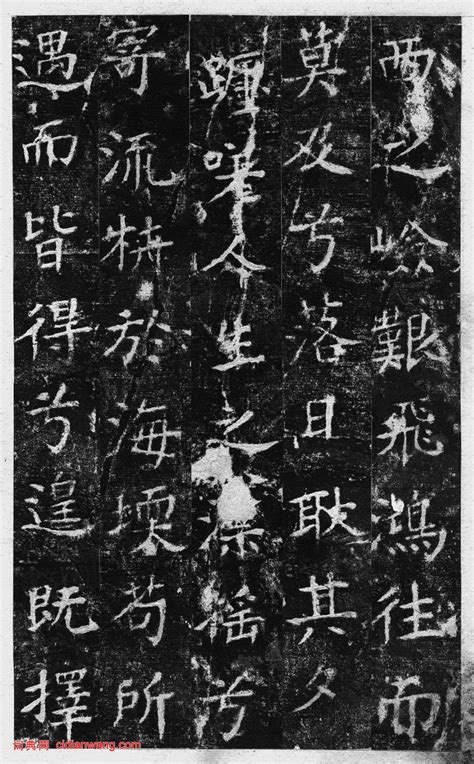 西之嶮艱飛鴻往而
莫及兮落日耿其夕
躔嗟今生之搖兮
寄流枿於海壖苟所
遇而皆得兮遑既擇
词典网 cidianwang.com